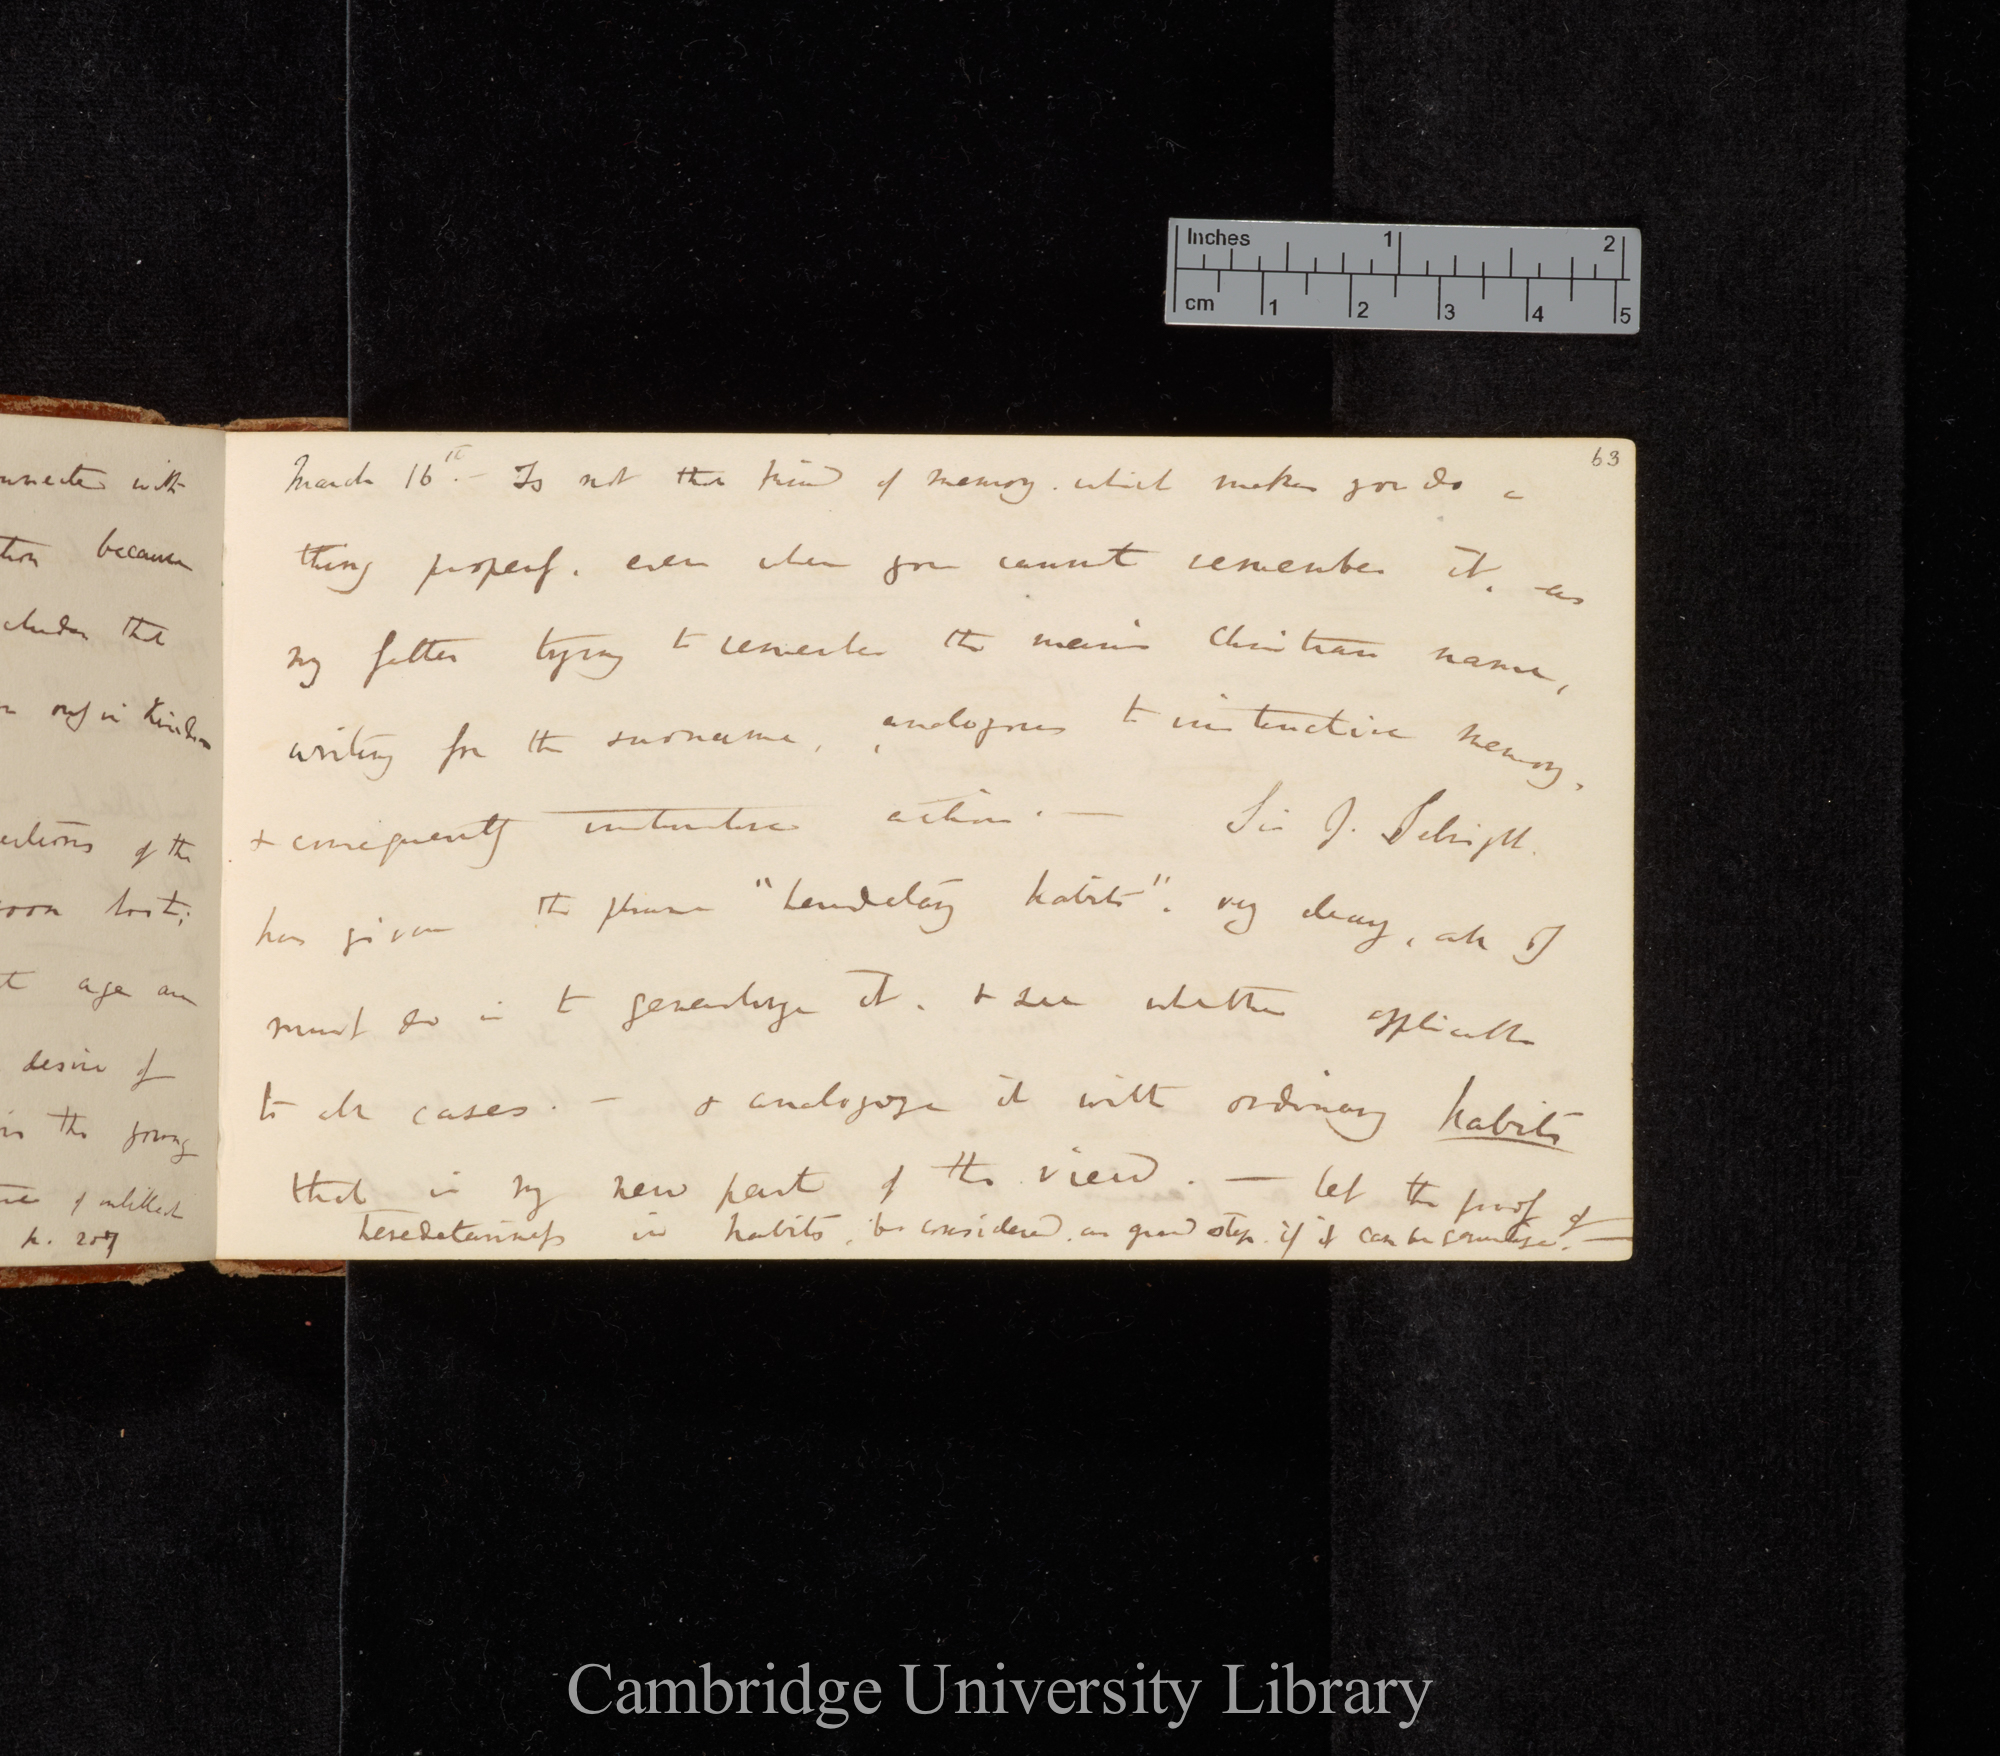 63
March 16th.— Is not that kind of memory. which makes you do a
thing properly, even when you cannot remember it, as
my father trying to remember the man's Christian name,
writing for the surname, analogous to instinctive memory,
& consequently instinctive action.— Sir J. Sebright.
has given the phrase "hereditary habits". very clearly, all I
must do is to generalize it, & see whether applicable
to all cases.— & analogize it with ordinary habits
that is my new part of the view.— let the proof of
hereditariness in habits, be considered. as grand step. if it can be generalized.—
onnected with
tion because
cludes that
only in kindness
ections of the
soon lost;
age are
desire of
in the young
of intellect
p. 207
Inches 1 2
cm 1 2 3 4 5
Cambridge University Library